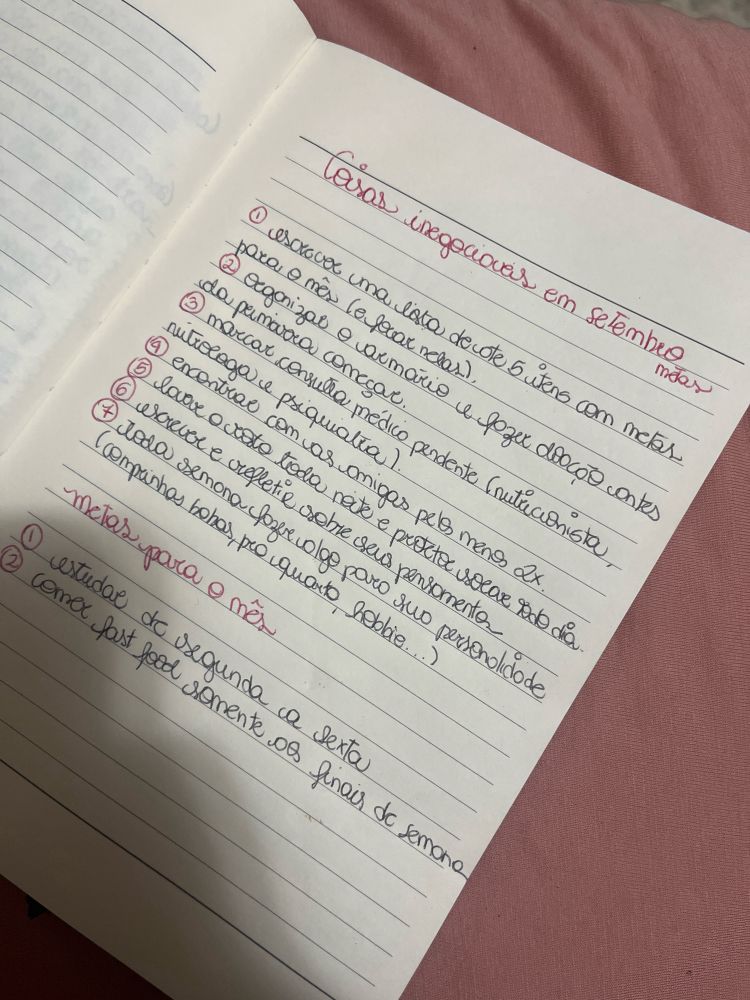 Coisas inegociaveis em setembro
① escrever uma lista de até 5 itens com metas
para o mês (e focar nelas).
metas
② organizar o armário e fazer doação antes
da primavera começar.
③ marcar consulta médico pendente (nutricionista,
nutrologa e psiquiatria).
④ encontrar com as amigas pelo menos 2x.
⑤ lavar o rosto toda noite e protetor socar todo dia.
⑥ escrever e refletir sobre seus pensamentos
⑦ toda semana fazer algo para sua personalidade
(comprinhas bobas, pro quarto, hobbie...)
metas para o mês
① estudar de segunda a sexta
② comer fast food somente os finais de semana